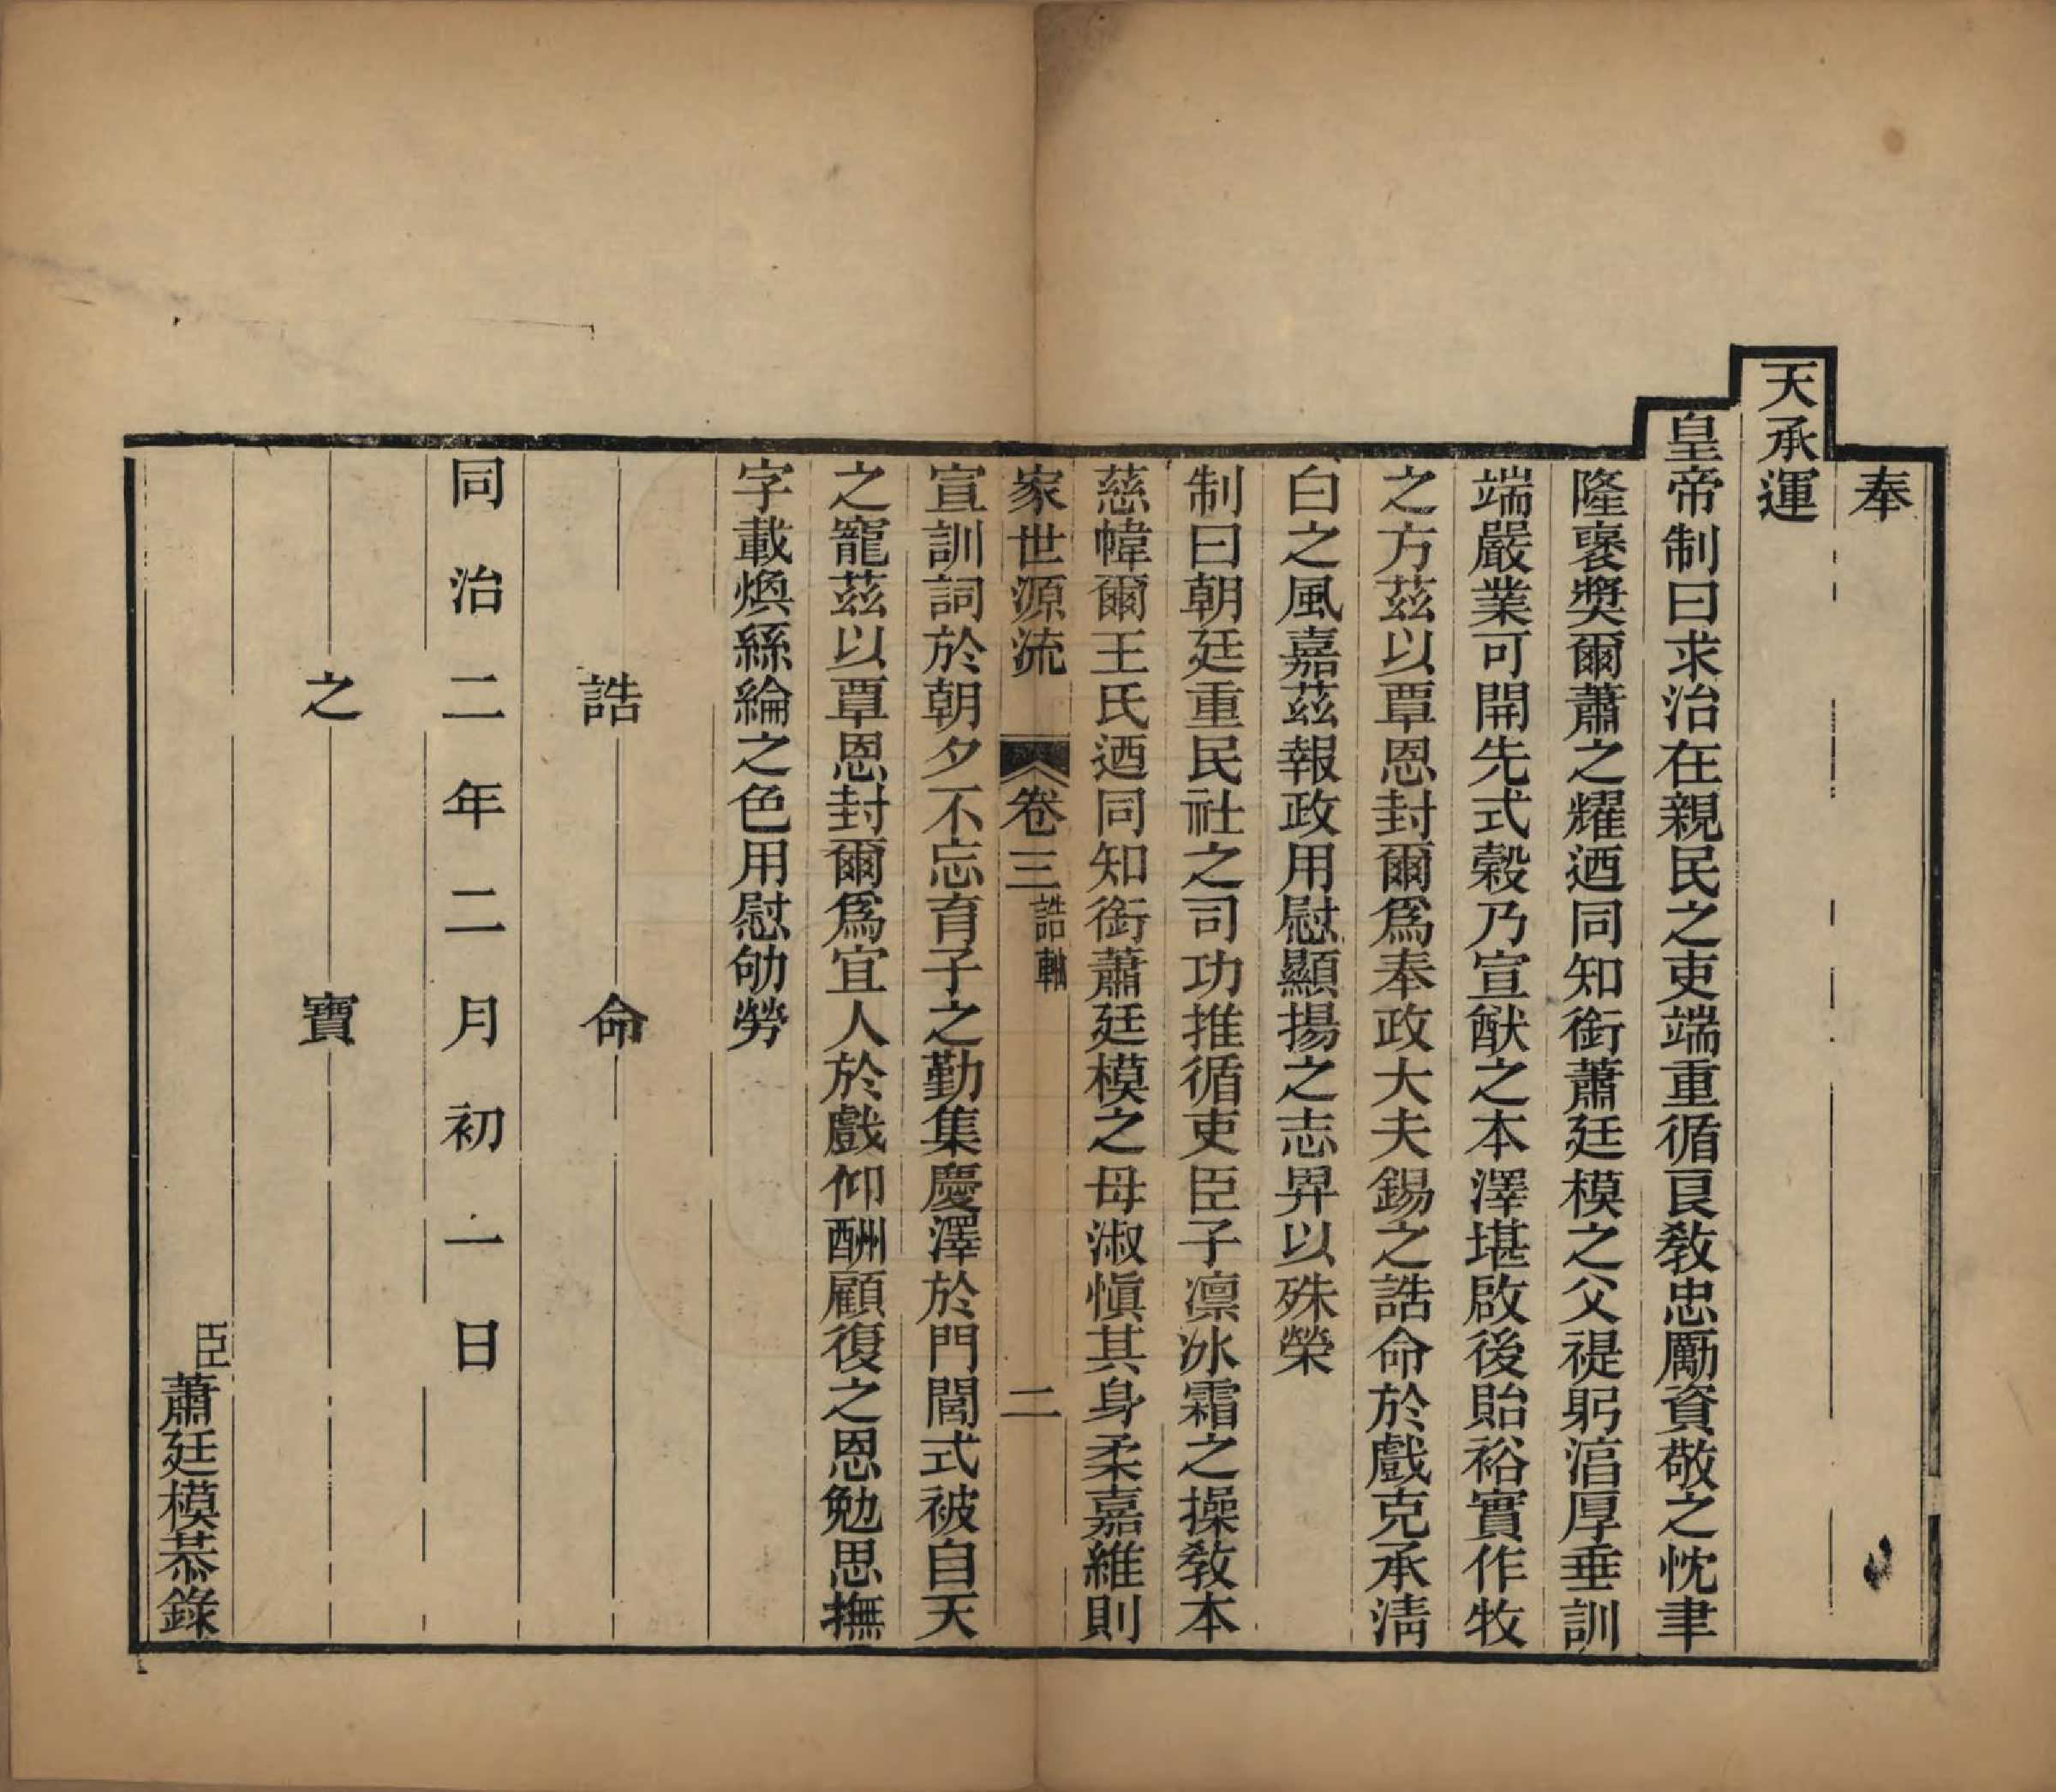 奉
天承運
皇帝制曰求治在親民之吏端重循良教忠勵資敬之忱聿
隆褒獎爾蕭之耀迺同知銜蕭廷模之父禔躬淳厚垂訓
端嚴業可開先式穀乃宣猷之本澤堪啟後貽裕實作牧
之方茲以覃恩封爾爲奉政大夫錫之誥命於戲克承淸
白之風嘉茲報政用慰顯揚之志畀以殊榮
制曰朝廷重民社之司功推循吏臣子凛冰霜之操敎本
慈幃爾王氏迺同知銜蕭廷模之母淑愼其身柔嘉維則
家世源流 卷三 誥軸 二
宣訓詞於朝夕不忘育子之勤集慶澤於門閭式被自天
之寵茲以覃恩封爾爲宜人於戲仰酬顧復之恩勉思撫
字載煥絲綸之色用慰劬勞
誥命
同治二年二月初一日
之寶
臣蕭廷模恭錄